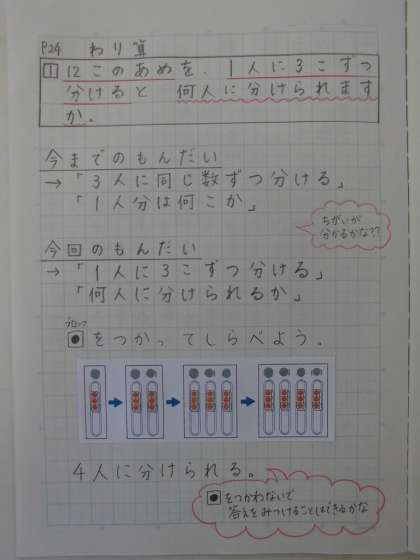 P24 わり算
1 12このあめを、1人に3こずつ
分けると 何人に分けられます
か。
今までのもんだい
→「3人に同じ数ずつ分ける」
「1人分は何こか」
ちがいが
分かるかな??
今回のもんだい
→「1人に3こずつ分ける」
「何人に分けられるか」
ブロック
をつかってしらべよう。
4人に分けられる。
をつかわないで
答えをみつけることはできるかな